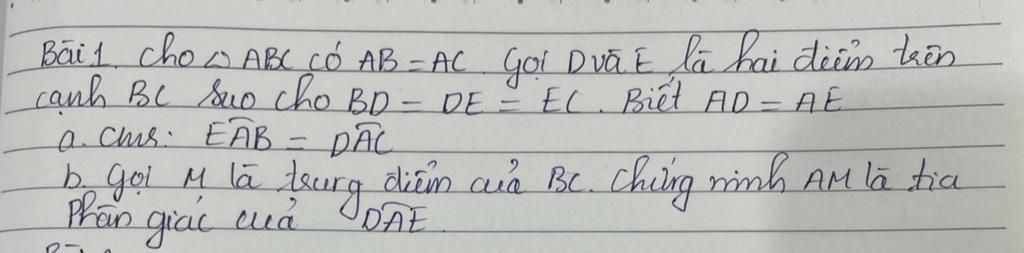 Bài 1. Cho △ABC có AB = AC. Gọi D và E là hai điểm trên
cạnh BC sao cho BD = DE = EC. Biết AD = AE
a. Cmr: \widehat{EAB} = \widehat{DAC}
b. Gọi M là trung điểm của BC. Chứng minh AM là tia
Phân giác của \widehat{DAE}